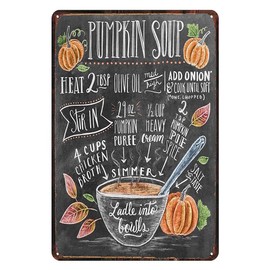 PUMPKIN SOUP
HEAT 2 TBSP OLIVE OIL med high
ADD ONION
& COOK UNTIL SOFT
(ONE, CHOPPED)
STIR IN
4 CUPS
CHICKEN
BROTH
29 oz
PUMPKIN
PUREE
½ CUP
HEAVY
Cream
2
PUMPKIN
SPICE
SIMMER
SALT
TO
Ladle into
bowls